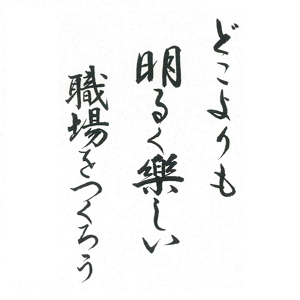 どこよりも
明るく樂しい
職場をつくろう